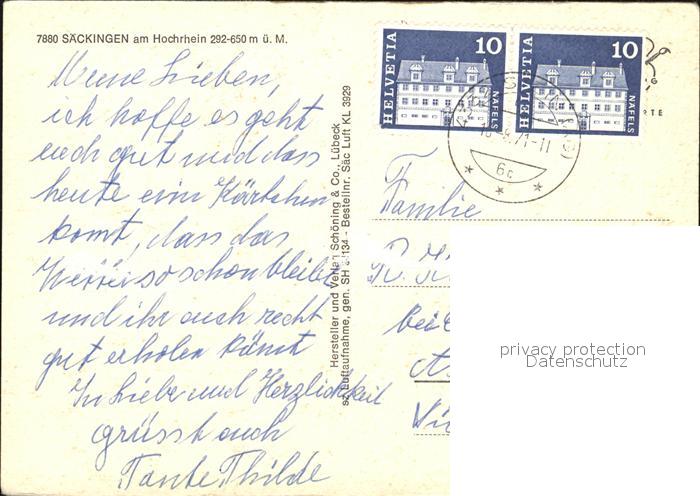 7880 SÄCKINGEN am Hochrhein 292-650 m ü. M.
Meine Lieben,
ich hoffe es geht
euch gut und das
heute eine Kärtchen
komt, dass das
so schön bleibe
und ihr auch recht
gut erholen könnt
In Liebe und Herzlichkeit
grüsst euch
Tante Thilde
Hersteller und Verlag Schöning & Co., Lübeck
sz Luftaufnahme, gen. SH 134 - Bestellnr. Säc Luft KL 3929
HELVETIA 10 NÄFELS
HELVETIA 10 NÄFELS
6c
Familie
bei
privacy protection
Datenschutz